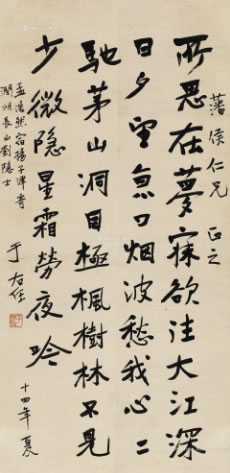 藩侯仁兄 正之
所思在夢寐欲往大江深
日夕望京口烟波愁我心二
馳茅山洞目極楓樹林不見
少微隱星霜勞夜吟
孟浩然宿揚子津寄
潤州長山劉隱士
于右任
十四年夏